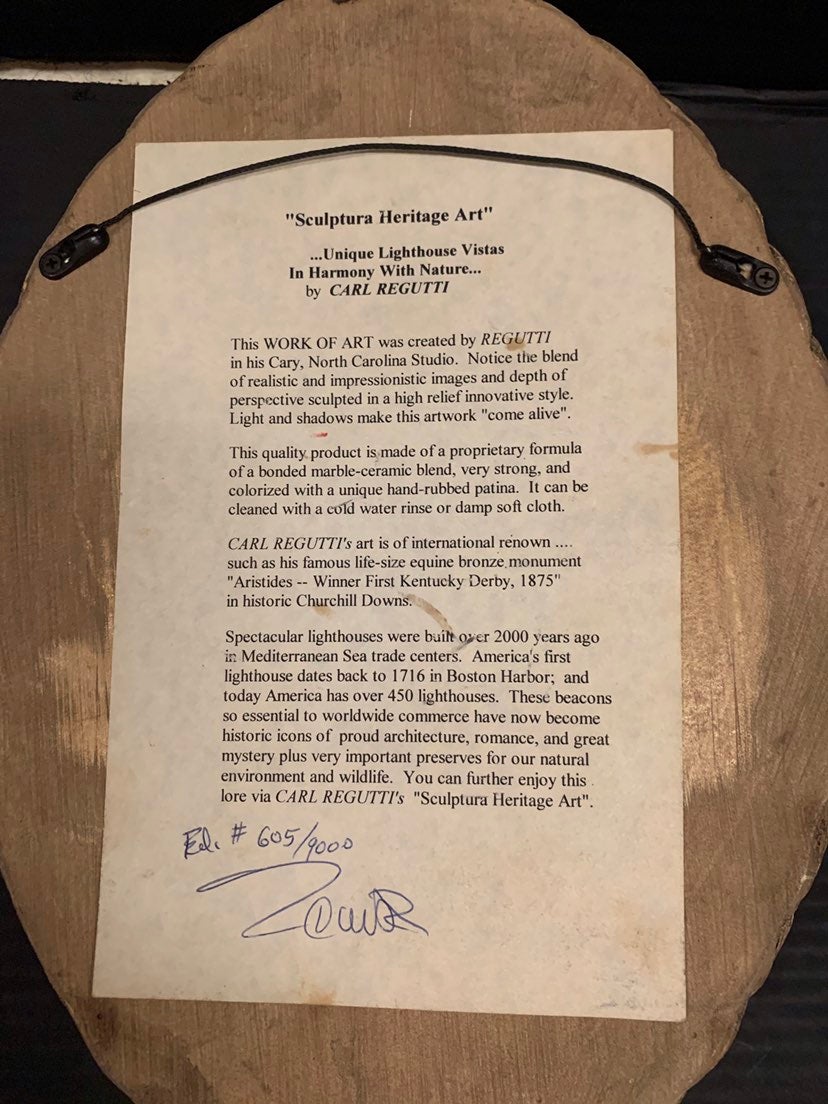 "Sculptura Heritage Art"
...Unique Lighthouse Vistas
In Harmony With Nature...
by CARL REGUTTI
This WORK OF ART was created by REGUTTI
in his Cary, North Carolina Studio. Notice the blend
of realistic and impressionistic images and depth of
perspective sculpted in a high relief innovative style.
Light and shadows make this artwork "come alive".
This quality product is made of a proprietary formula
of a bonded marble-ceramic blend, very strong, and
colorized with a unique hand-rubbed patina. It can be
cleaned with a cold water rinse or damp soft cloth.
CARL REGUTTI's art is of international renown ....
such as his famous life-size equine bronze monument
"Aristides -- Winner First Kentucky Derby, 1875"
in historic Churchill Downs.
Spectacular lighthouses were built over 2000 years ago
in Mediterranean Sea trade centers. America's first
lighthouse dates back to 1716 in Boston Harbor; and
today America has over 450 lighthouses. These beacons
so essential to worldwide commerce have now become
historic icons of proud architecture, romance, and great
mystery plus very important preserves for our natural
environment and wildlife. You can further enjoy this
lore via CARL REGUTTI's "Sculptura Heritage Art".
Ed. # 605/9000